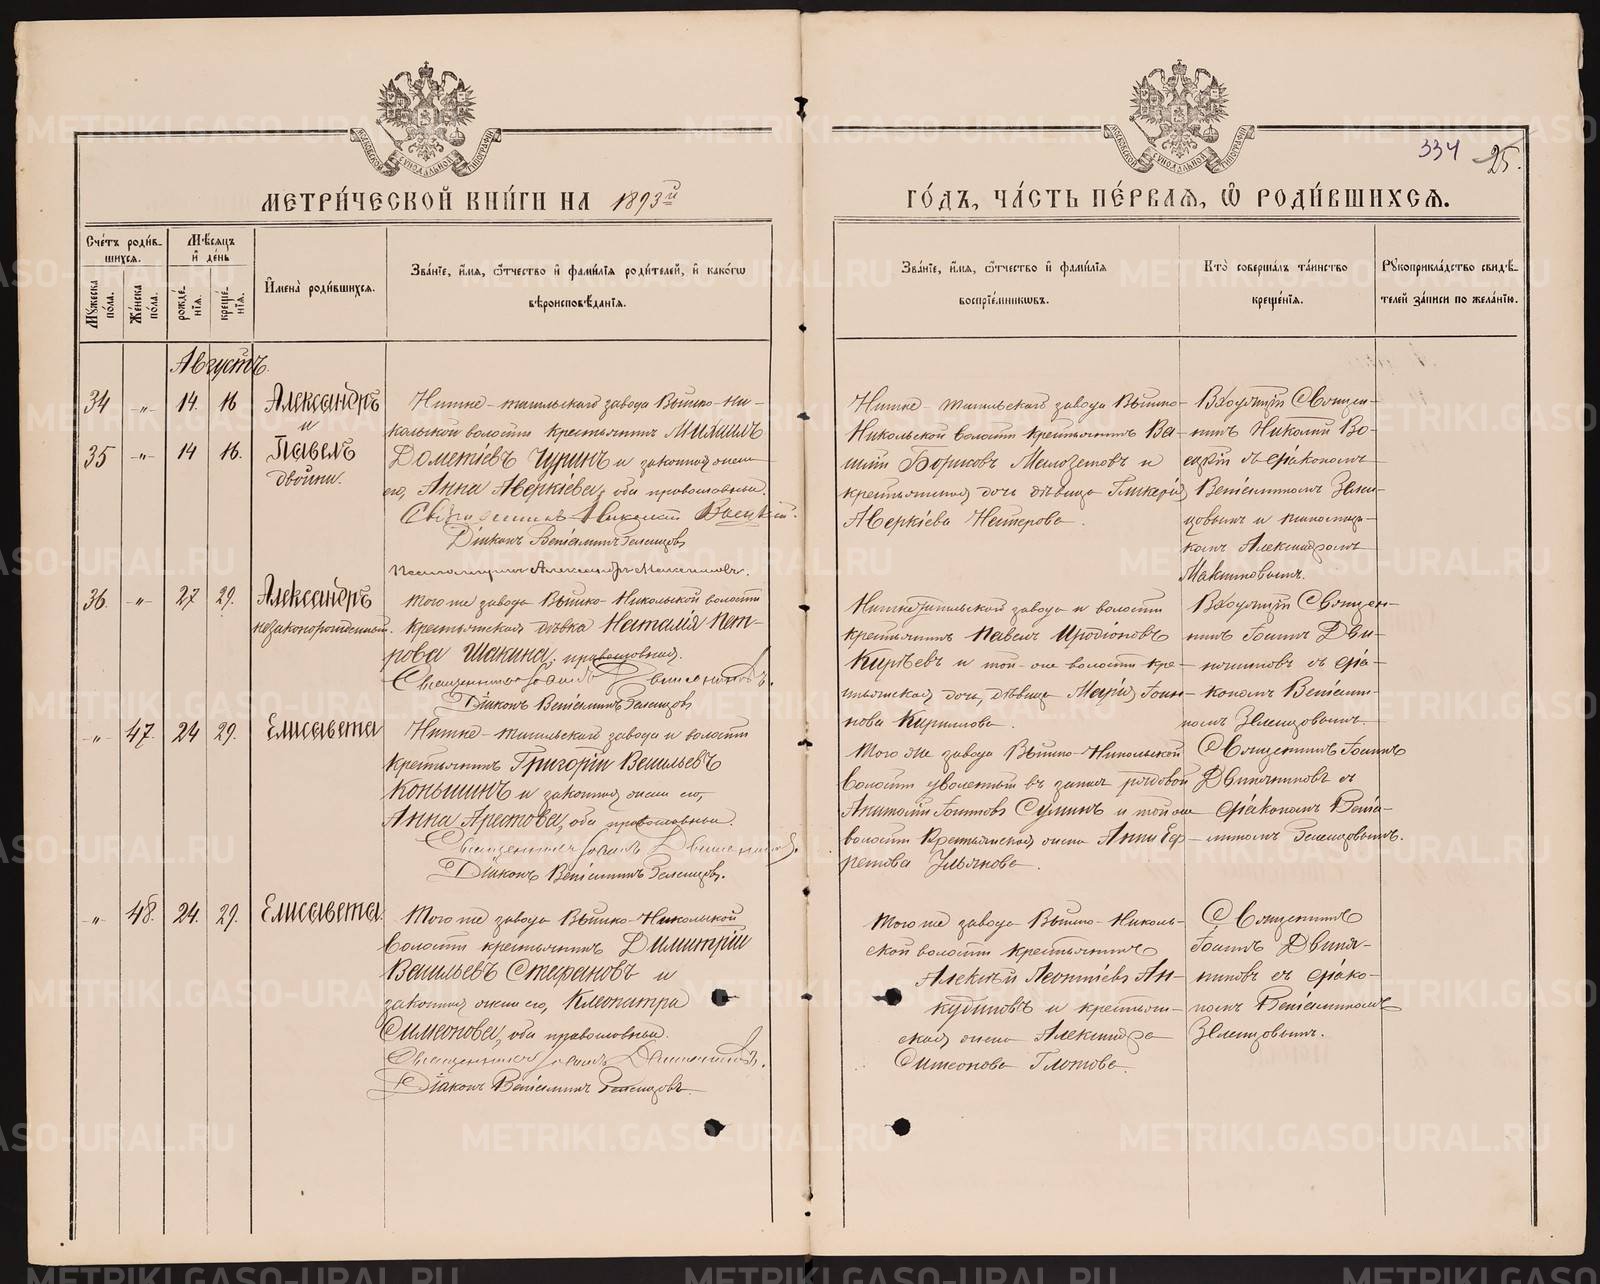 МЕТРИ́ЧЕСКОЙ КНИ́ГИ НА 1893й
ГО́ДЪ, ЧА́СТЬ ПЕ́РВАѦ, Ѽ РОДИ́ВШИХСѦ.
334 25.
Сче́тъ роди́в-
шихся.
Мѣ́сяцъ
и҆ де́нь
Мꙋ́жеска по́ла.
Же́нска по́ла.
рожде́-
нїѧ.
креще́-
нїѧ.
И҆мена̀ роди́вшихсѧ.
Зва́нїе, и҆́мѧ, ѻ҆́тчество и҆ фами́лїѧ роди́телей, и҆ како́гѡ
вѣроисповѣ́данїѧ.
Зва́нїе, и҆́мѧ, ѻ҆́тчество и҆ фами́лїѧ
воспрїе́мникѡвъ.
Кто̀ соверша́лъ та́инство
креще́нїѧ.
Рꙋкоприкла́дство свидѣ́-
телей за́писи по жела́нїю.
Августъ.
34 -"- 14. 16 Александръ
и
35 -"- 14 16. Павелъ
двойни.
Нижне-тагильскаго завода Выйско-Ни-
кольской волости крестьянинъ Михаилъ
Дометіевъ Чуринъ и законная жена
его, Анна Аверкіева, оба православные.
Священникъ Николай
Діаконъ Веніаминъ Зеленцовъ
Псаломщикъ Александръ Макшановъ.
Нижне-тагильскаго завода Выйско-
Никольской волости крестьянинъ Ва-
силій Борисовъ и
крестьянская дочь дѣвица Гликерія
Аверкіева Нестерова.
Приходскій Священ-
никъ Николай
съ діакономъ
Веніаминомъ Зелен-
цовымъ и псаломщи-
комъ Александромъ
36. -"- 27 29. Александръ
незаконорожденный.
Того же завода Выйско-Никольской волости
крестьянская дѣвка Наталія Пет-
рова Шакина, православная.
Священникъ Іоаннъ Двиняниновъ.
Діаконъ Веніаминъ Зеленцовъ
Нижнетагильскаго завода и волости
крестьянинъ Павелъ Иродіоновъ
Кирѣевъ и той-же волости кре-
стьянская дочь, дѣвица Марія Іоан-
нова Кирилова.
Приходскій Священ-
никъ Іоаннъ Дви-
няниновъ съ діа-
кономъ Веніами-
номъ Зеленцовымъ.
-"- 47 24 29. Елисавета
Нижне-тагильскаго завода и волости
крестьянинъ Григорій Васильевъ
Коньшинъ и законная жена его,
Анна, оба православные.
Священникъ Іоаннъ Двиняниновъ.
Діаконъ Веніаминъ Зеленцовъ.
Того же завода Выйско-Никольской
волости уволенный въ запасъ рядовой
Анатолій Іоанновъ Суминъ и той же
волости крестьянская жена Анна
Ульянова.
Священникъ Іоаннъ
Двиняниновъ съ
діакономъ Веніа-
миномъ Зеленцовымъ.
-"- 48. 24. 29. Елисавета.
Того же завода Выйско-Никольской
волости крестьянинъ Димитрій
Васильевъ Стефановъ и
законная жена его, Клеопатра
Симеонова, оба православные.
Священникъ Іоаннъ Двиняниновъ.
Діаконъ Веніаминъ Зеленцовъ.
Того же завода Выйско-Николь-
ской волости крестьянинъ
Алексѣй Леонтіевъ Ан-
кудиновъ и крестьян-
ская жена Александра
Симеонова Глотова.
Священникъ
Іоаннъ Двиня-
ниновъ съ діако-
номъ Веніаминомъ
Зеленцовымъ.
METRIKI.GASO-URAL.RU